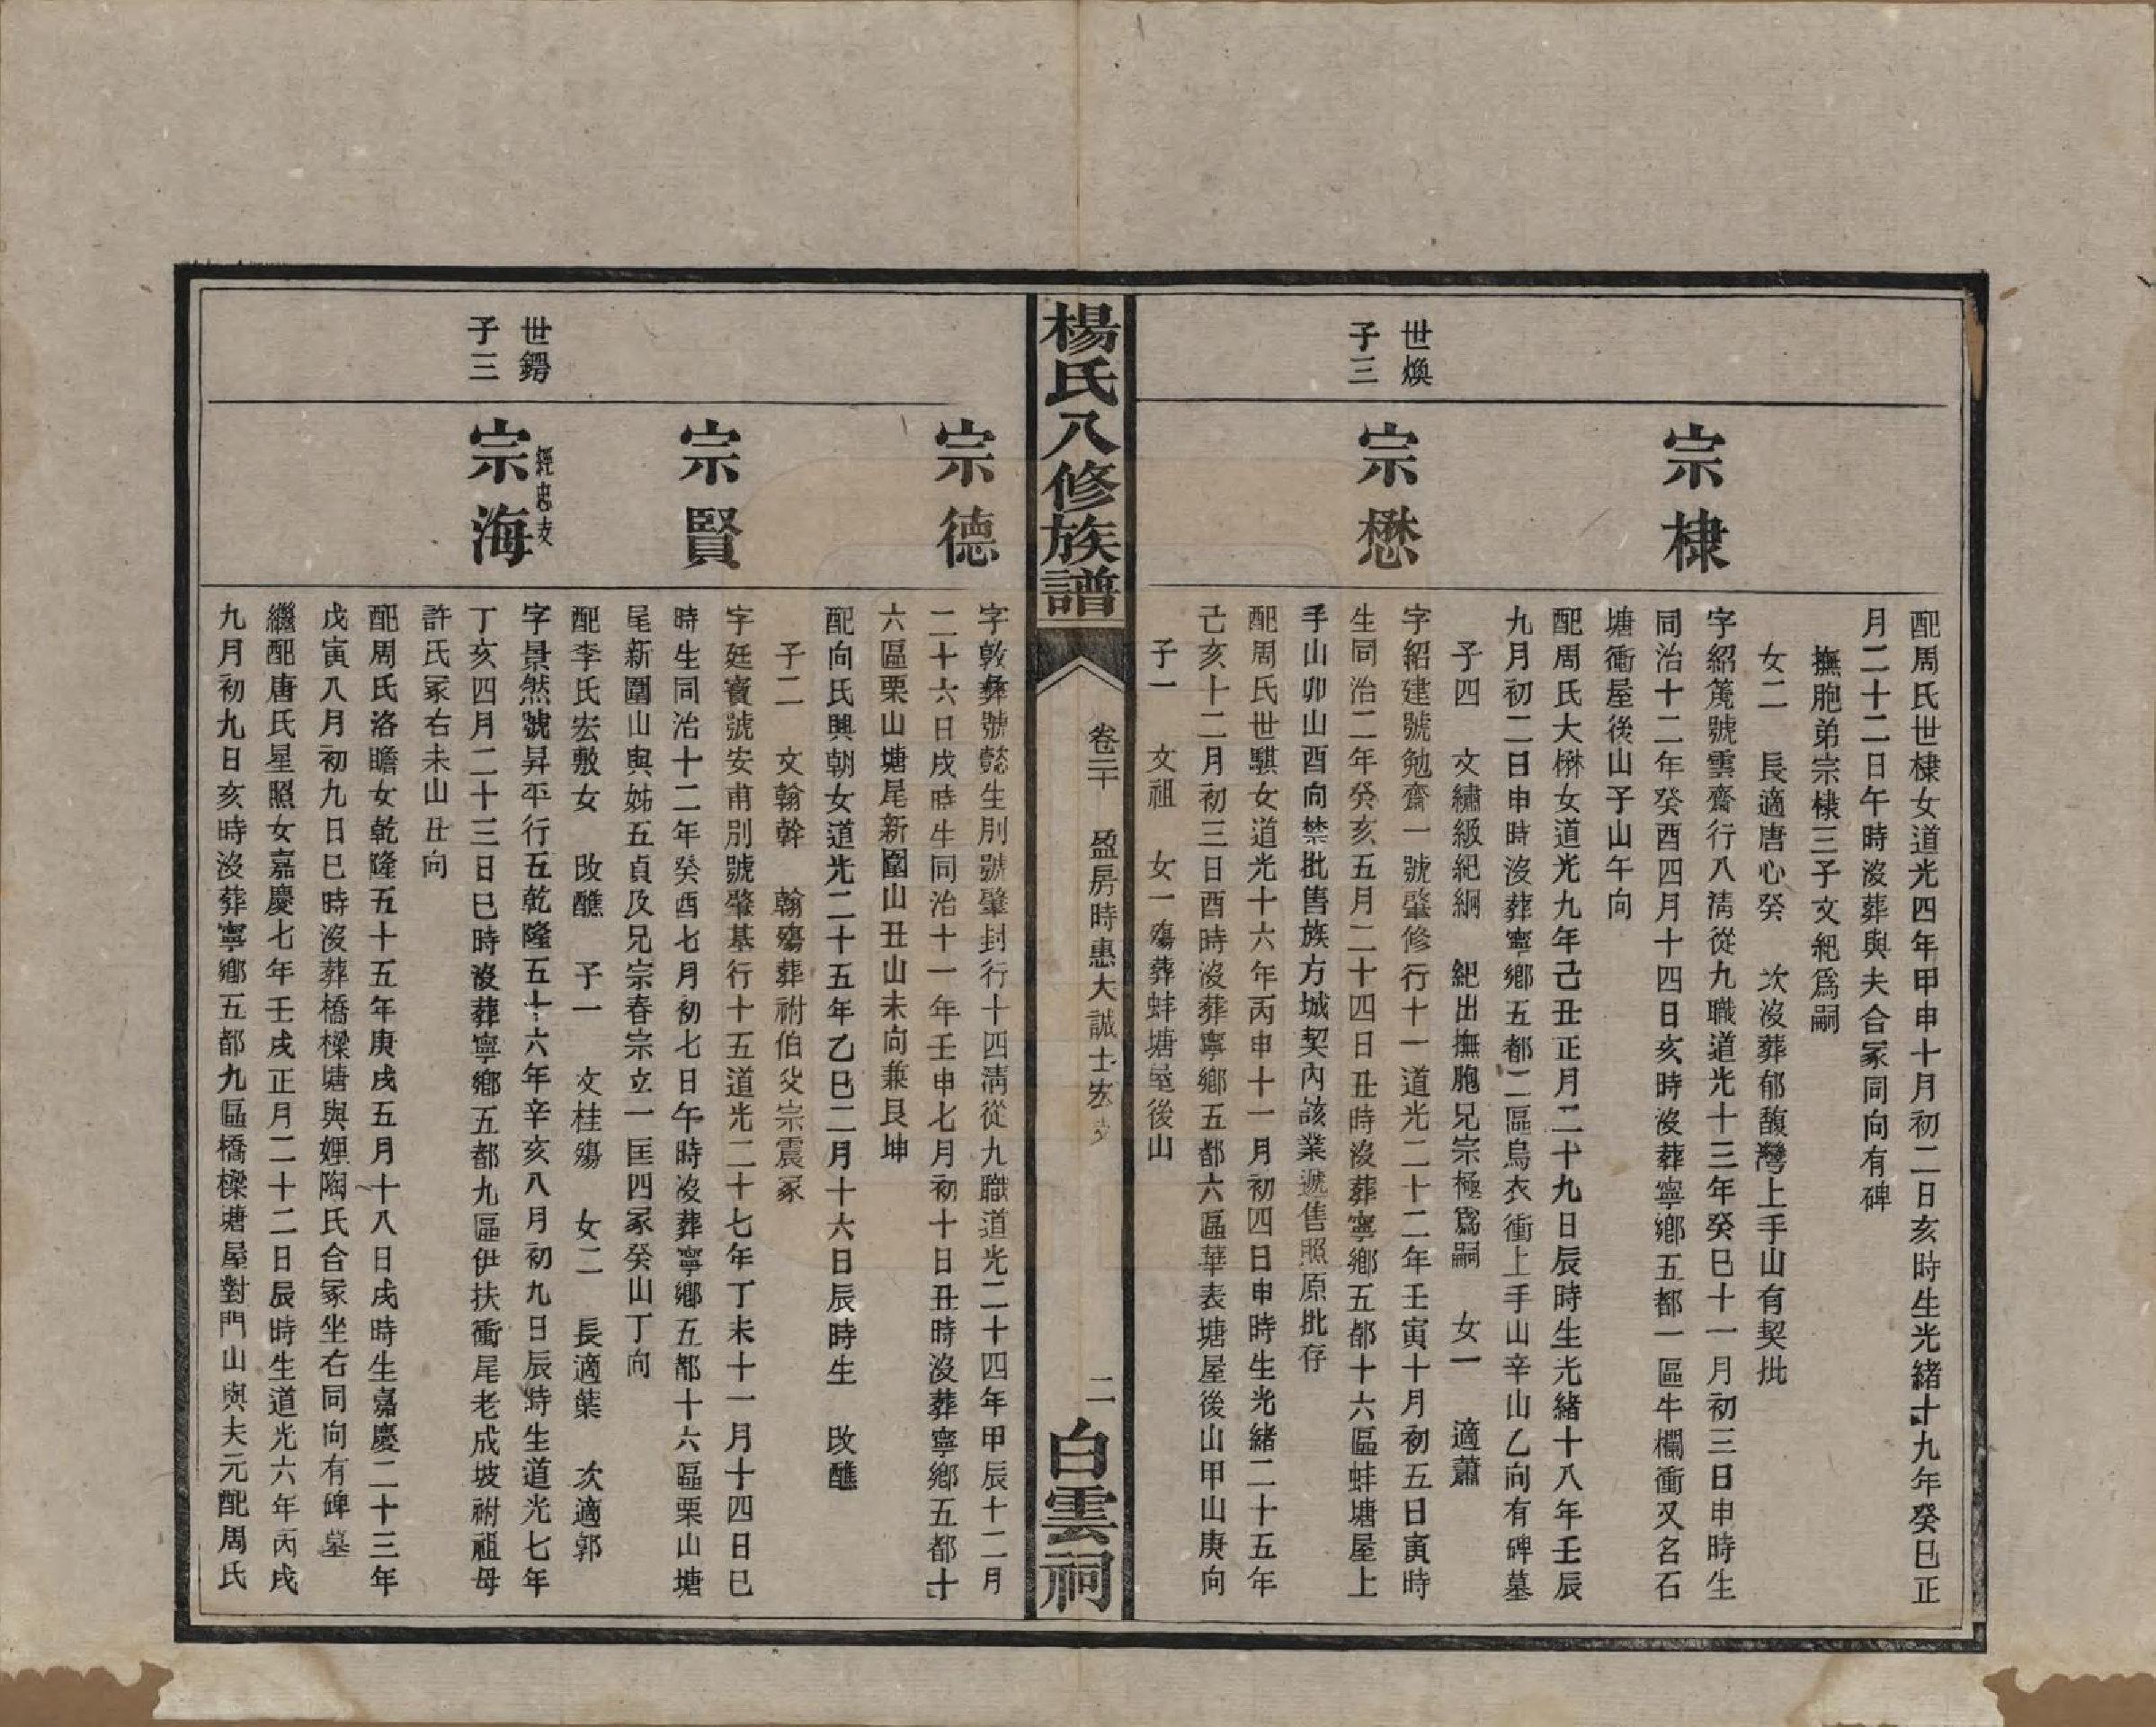 配周氏世棣女道光四年甲申十月初二日亥時生光緒十九年癸巳正
月二十二日午時沒葬與夫合冢同向有碑
撫胞弟宗棣三子文紀爲嗣
女二 長適唐心癸 次沒葬郁馥灣上手山有契批
宗棣
字紹篤號雲齋行八淸從九職道光十三年癸巳十一月初三日申時生
同治十二年癸酉四月十四日亥時沒葬寧鄉五都一區牛欄衝又名石
塘衝屋後山子山午向
配周氏大楙女道光九年己丑正月二十九日辰時生光緒十八年壬辰
九月初二日申時沒葬寧鄉五都二區烏衣衝上手山辛山乙向有碑墓
子四 文繡級紀綱 紀出撫胞兄宗極爲嗣 女一 適蕭
世煥
子三
宗懋
字紹建號勉齋一號肇修行十一道光二十二年壬寅十月初五日寅時
生同治二年癸亥五月二十四日丑時沒葬寧鄉五都十六區蚌塘屋上
手山卯山酉向禁批售族方城契內該業遞售照原批存
配周氏世騏女道光十六年丙申十一月初四日申時生光緒二十五年
己亥十二月初三日酉時沒葬寧鄉五都六區華表塘屋後山甲山庚向
子一 文祖 女一殤葬蚌塘屋後山
楊氏八修族譜
卷二十 盈房時惠大誠士宏支
二
白雲祠
宗德
字敦彝號懿生別號肇封行十四淸從九職道光二十四年甲辰十二月
二十六日戌時生同治十一年壬申七月初十日丑時沒葬寧鄉五都十
六區栗山塘尾新圍山丑山未向兼艮坤
配向氏興朝女道光二十五年乙巳二月十六日辰時生 改醮
子二 文翰幹 翰殤葬祔伯父宗震冢
宗賢
字廷賓號安甫別號肇基行十五道光二十七年丁未十一月十四日巳
時生同治十二年癸酉七月初七日午時沒葬寧鄉五都十六區栗山塘
尾新圍山與姊五貞及兄宗春宗立一匡四冢癸山丁向
配李氏宏敷女 改醮 子一 文桂殤 女二 長適葉 次適郭
世鍔
子三
經忠支
宗海
字景然號昇平行五乾隆五十六年辛亥八月初九日辰時生道光七年
丁亥四月二十三日巳時沒葬寧鄉五都九區伊扶衝尾老成坡祔祖母
許氏冢右未山丑向
配周氏洛瞻女乾隆五十五年庚戌五月十八日戌時生嘉慶二十三年
戊寅八月初九日巳時沒葬橋樑塘與娌陶氏合冢坐右同向有碑墓
繼配唐氏星照女嘉慶七年壬戌正月二十二日辰時生道光六年丙戌
九月初九日亥時沒葬寧鄉五都九區橋樑塘屋對門山與夫元配周氏